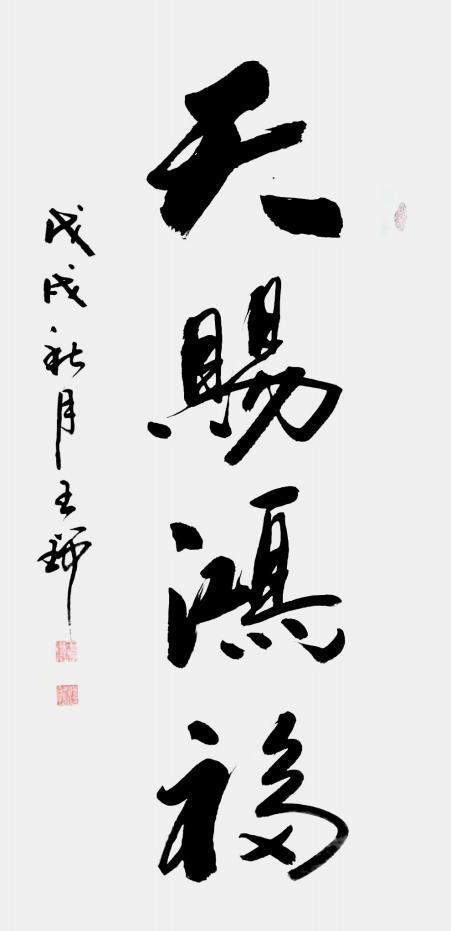 天賜鴻福
戊戌秋月王